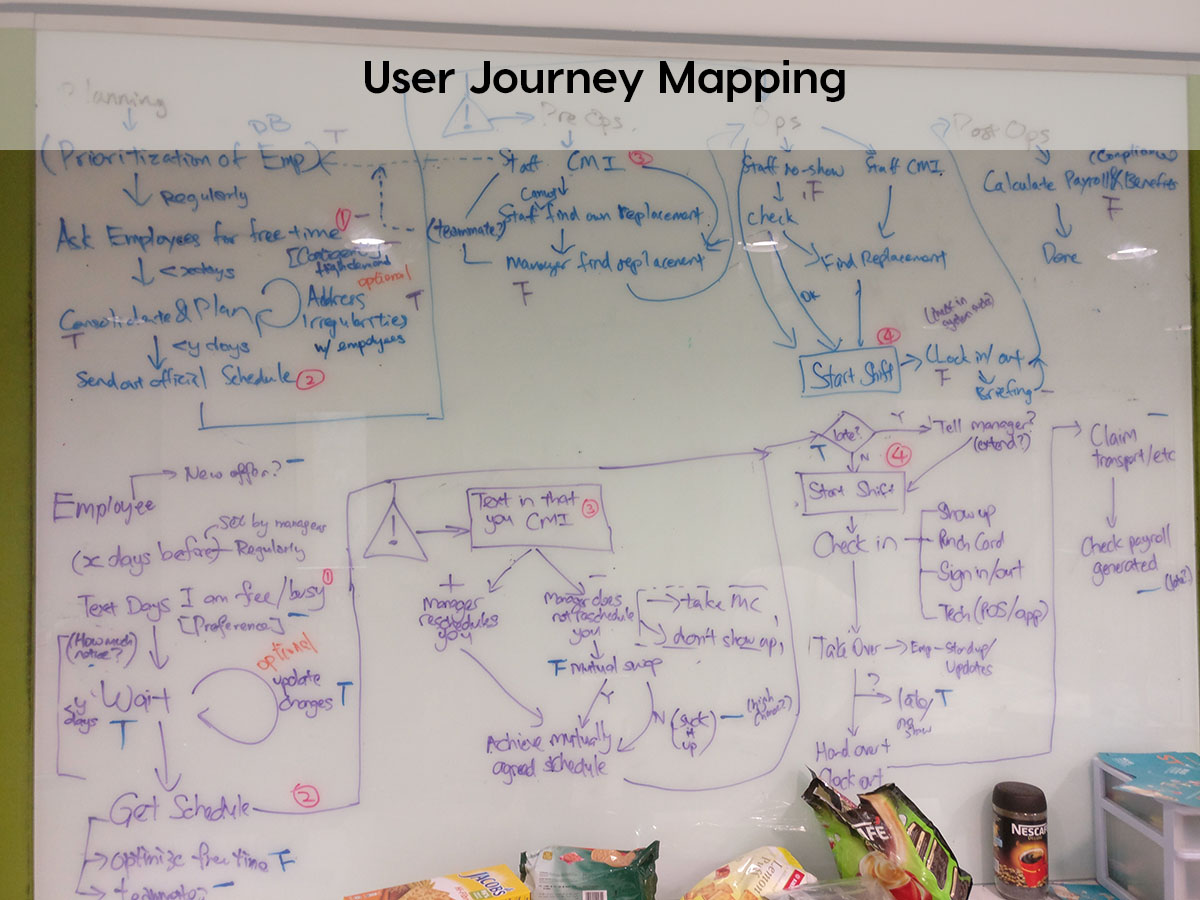 User Journey Mapping
Planning
DB T
(Prioritization of Emp)
Regularly
Ask Employees for free time ①
<x days
Consolidate & Plan
T
optional
Address
Irregularities
w/ employees
T
<y days
Send out official Schedule ②
!
Pre Ops
Staff CMI ③
Staff find own replacement
(teammate?)
Manager find replacement
F
Ops
Staff no-show
F
Staff CMI
check
Find Replacement
OK
④
Start Shift
Clock in/out
F
Briefing
Post Ops
(Compliance)
Calculate Payroll & Benefits
F
Done
New offer?
Employee
Set by managers
(x days before) Regularly
Text Days I am free/busy ①
[Preference]
(How much
notice?)
y
days
Wait
T
optional
update
changes T
Get Schedule ②
optimize free time F
teammate?
!
Text in that
you CMI ③
+
Manager
reschedules
you
−
Manager does
not reschedule
you
take MC
don't show up
F Mutual swap
Y
N (suck
it
up)
Achieve mutually
agreed schedule
late?
Y
Tell manager?
(extend?)
T
N
④
Start Shift
Check in
Show up
Punch Card
Sign in/out
Tech (POS/app)
Take Over
Emp - Standup/
updates
?
late/ T
no
show
Hand over +
Clock out
Claim
transport/etc
Check payroll
generated
JACOB'S
Lemon
NESCAFÉ